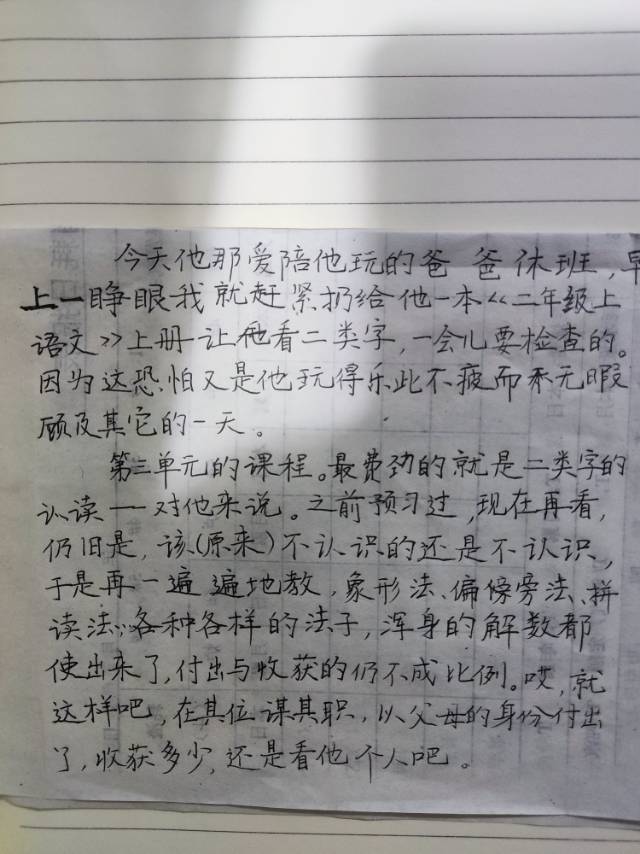 今天他那爱陪他玩的爸爸休班,早
上一睁眼我就赶紧扔给他一本《二年级上
语文》上册让他看二类字,一会儿要检查的。
因为这恐怕又是他玩得乐此不疲而无暇
顾及其它的一天。
第三单元的课程。最费劲的就是二类字的
认读——对他来说。之前预习过,现在再看,
仍旧是,该(原来)不认识的还是不认识,
于是再一遍遍地教,象形法、偏傍旁法、拼
读法:各种各样的法子,浑身的解数都
使出来了,付出与收获的仍不成比例。哎,就
这样吧,在其位谋其职,以父母的身份付出
了,收获多少,还是看他个人吧。